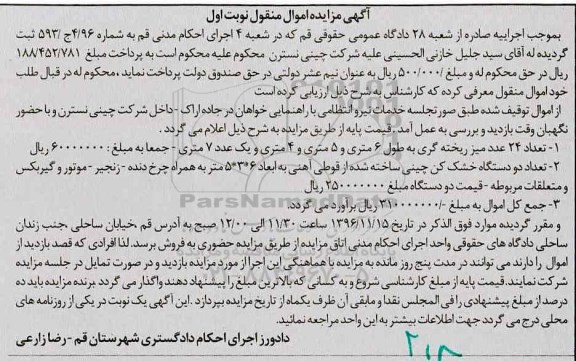 آگهی مزایده اموال منقول نوبت اول
بموجب اجراییه صادره از شعبه ۲۸ دادگاه عمومی حقوقی قم که در شعبه ۴ اجرای احکام مدنی قم به شماره ۴/۹۶ج/۵۹۳ ثبت
گردیده له آقای سید جلیل خازنی الحسینی علیه شرکت چینی نسترن محکوم علیه محکوم است به پرداخت مبلغ ۱۸۸/۴۵۲/۷۸۱
ریال در حق محکوم له و مبلغ /۵۰۰/۰۰۰ ریال به عنوان نیم عشر دولتی در حق صندوق دولت پرداخت نماید، محکوم له در قبال طلب
خود اموال منقول معرفی کرده که کارشناس به شرح ذیل ارزیابی کرده است
از اموال توقیف شده طبق صورتجلسه خدمات نیرو انتظامی با راهنمایی خواهان در جاده اراک -داخل شرکت چینی نسترن و با حضور
نگهبان وقت بازدید و بررسی به عمل آمد . قیمت پایه از طریق مزایده به شرح ذیل اعلام می گردد .
۱- تعداد ۲۴ عدد میز ریخته گری به طول ۶ متری و ۵ متری و ۴ متری و یک عدد ۷ متری - جمعا به مبلغ : ۶۰۰۰۰۰۰۰ ریال
۲- تعداد دو دستگاه خشک کن چینی ساخته شده از قوطی آهنی به ابعاد ۶*۳*۵ متر به همراه چرخ دنده - زنجیر -موتور و گیربکس
و متعلقات مربوطه - قیمت دو دستگاه مبلغ ۲۵۰۰۰۰۰۰۰ ریال
۳- جمع کل اموال به مبلغ -/۳۱۰۰۰۰۰۰۰ ریال برآورد می گردد
و مقرر گردیده موارد فوق الذکر در تاریخ ۱۳۹۶/۱۱/۱۵ ساعت ۱۱/۳۰ الی ۱۲/۰۰ صبح به آدرس قم ،خیابان ساحلی ،جنب زندان
ساحلی دادگاه های حقوقی واحد اجرای احکام مدنی اتاق مزایده از طریق مزایده حضوری به فروش برسد. لذا افرادی که قصد بازدید از
اموال را دارند می توانند در مدت پنج روز مانده به مزایده با هماهنگی این اجرا از مورد مزایده بازدید و در صورت تمایل در جلسه مزایده
شرکت نمایند. قیمت پایه از مبلغ کارشناسی شروع و به کسانی که بالاترین مبلغ را پیشنهاد دهند واگذار می گردد برنده مزایده باید ده
درصد از مبلغ پیشنهادی را فی المجلس نقدا و مابقی آن ظرف یکماه از تاریخ مزایده بپردازد .این آگهی یک نوبت در یکی از روزنامه های
محلی درج می گردد جهت اطلاعات بیشتر به این واحد مراجعه نمائید.
دادورز اجرای احکام دادگستری شهرستان قم - رضا زارعی